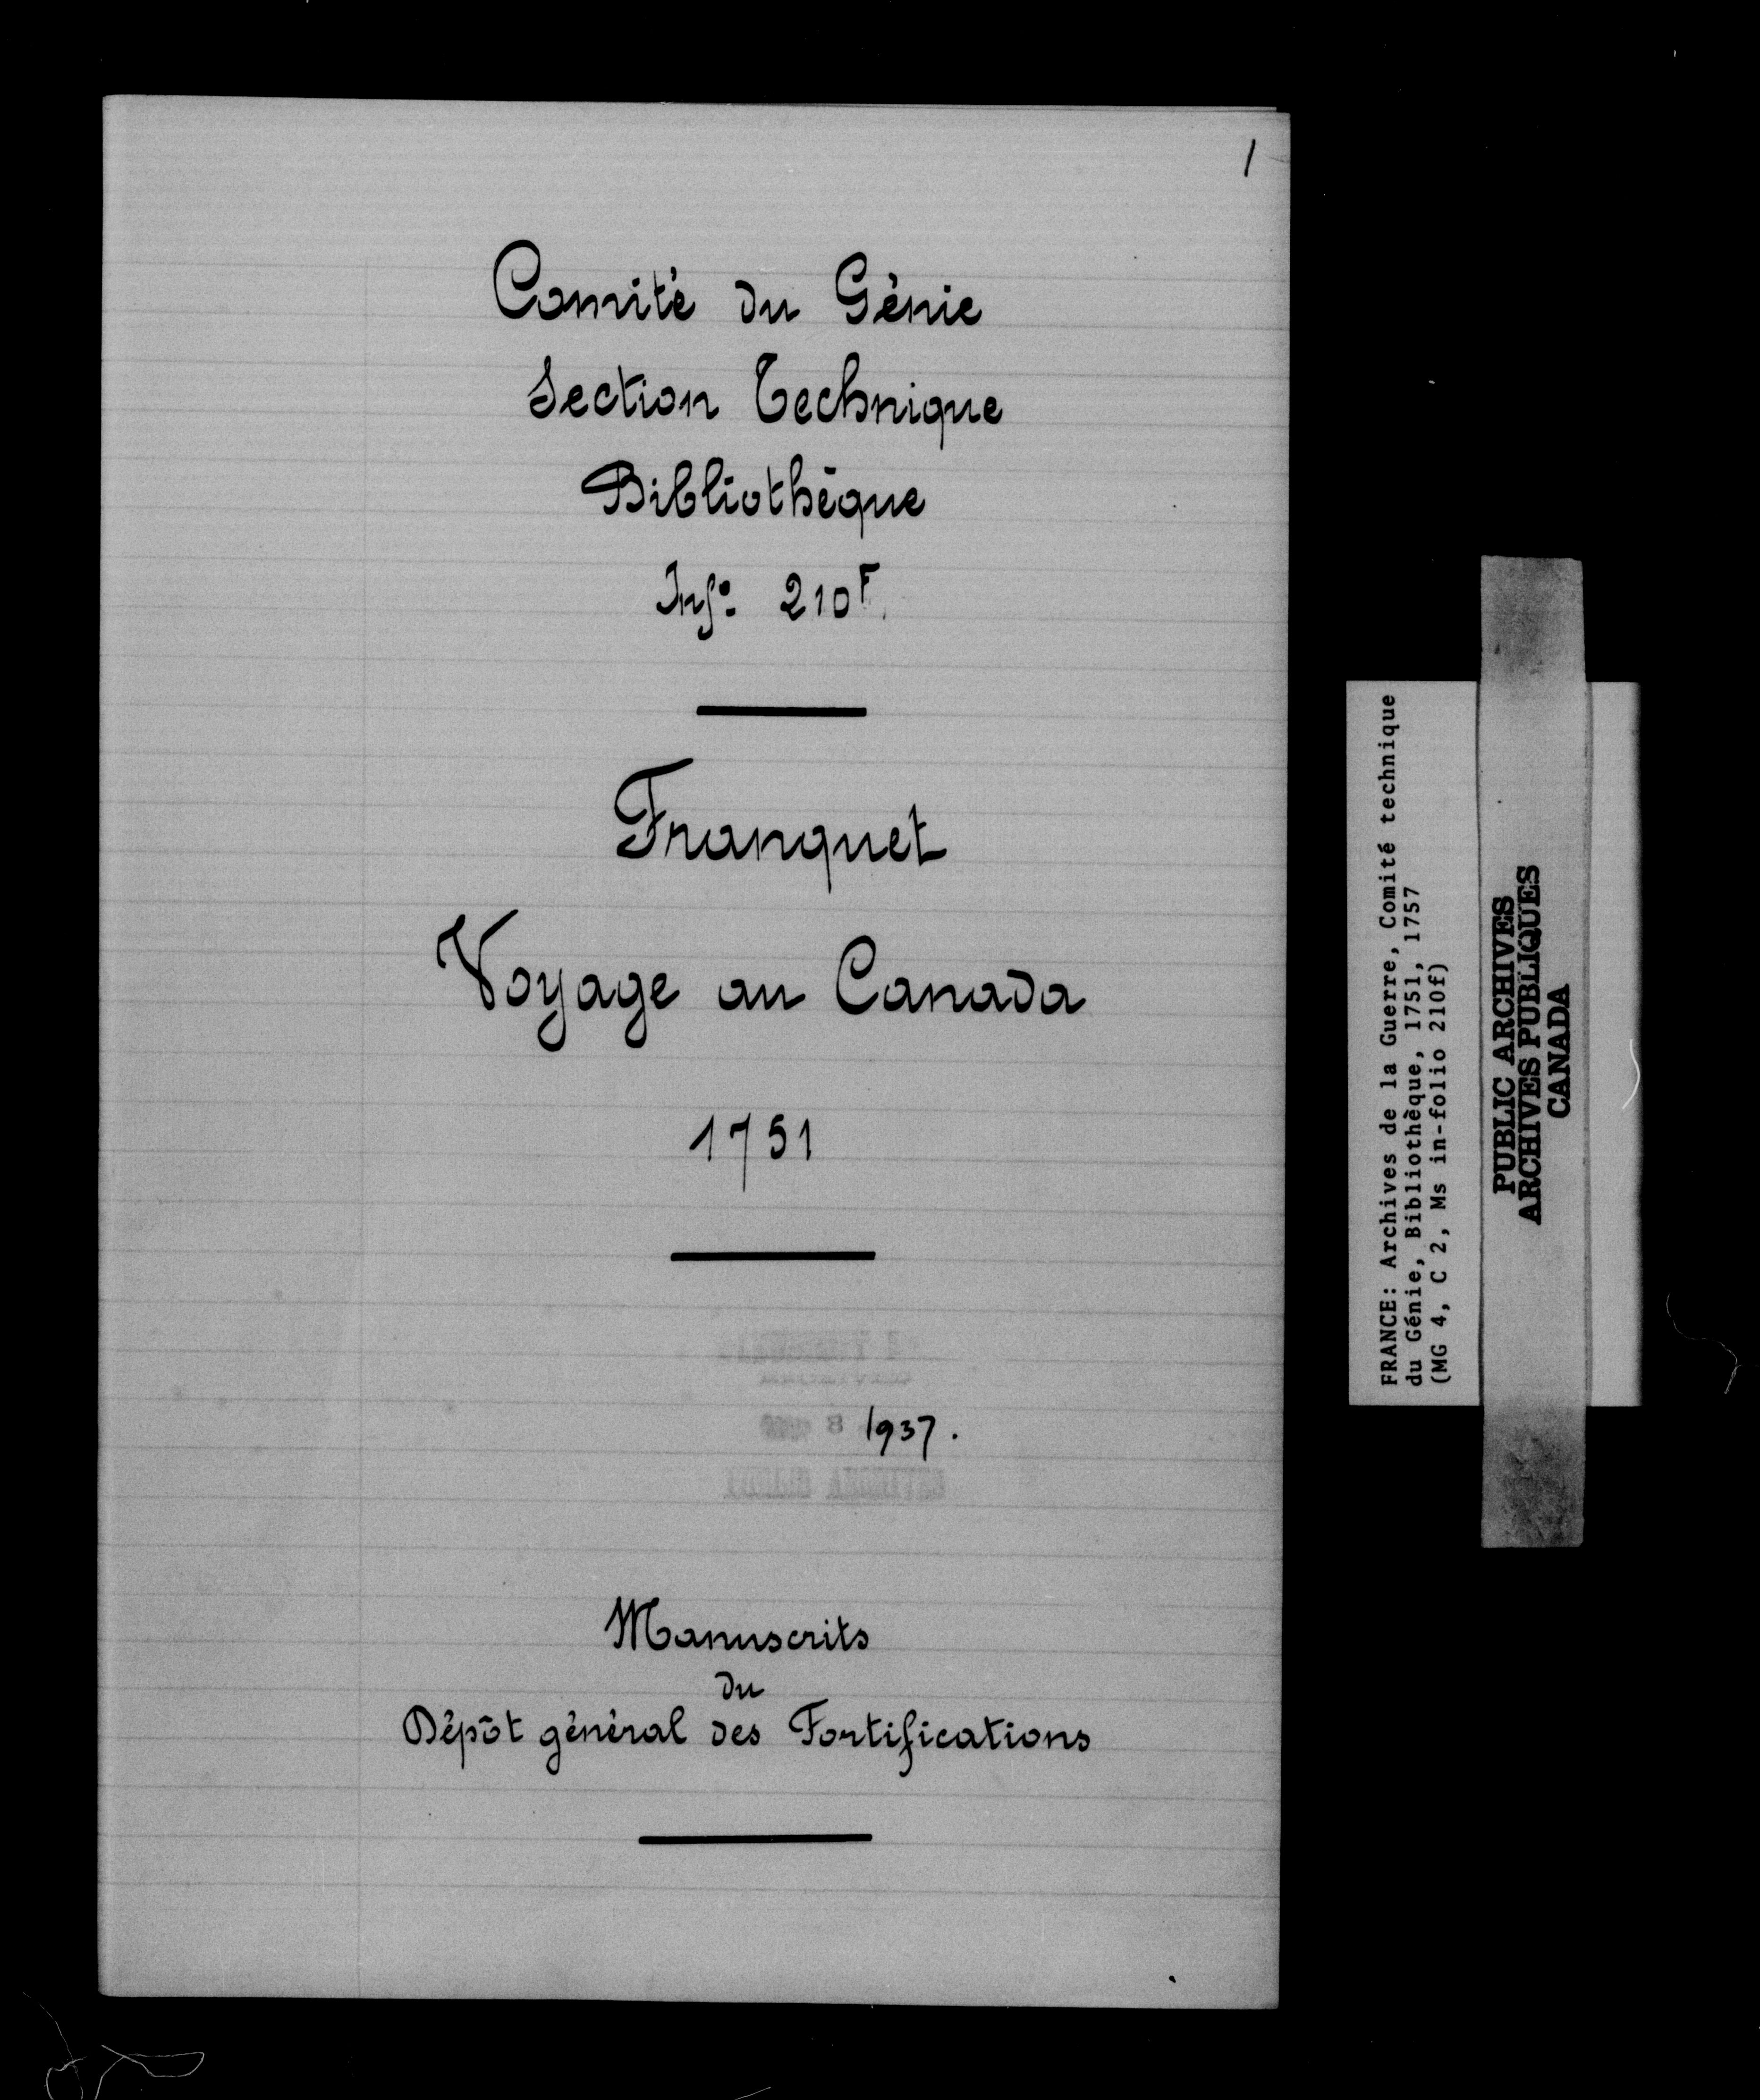 1
Comité du Génie
Section Technique
Bibliothèque
Inf° 210F
Franquet
Voyage au Canada
1751
8 1937.
PUBLIC ARCHIVES
Manuscrits
du
Dépôt général des Fortifications
FRANCE: Archives de la Guerre, Comité technique
du Génie, Bibliothèque, 1751, 1757
(MG 4, C 2, Ms in-folio 210f)
PUBLIC ARCHIVES
ARCHIVES PUBLIQUES
CANADA